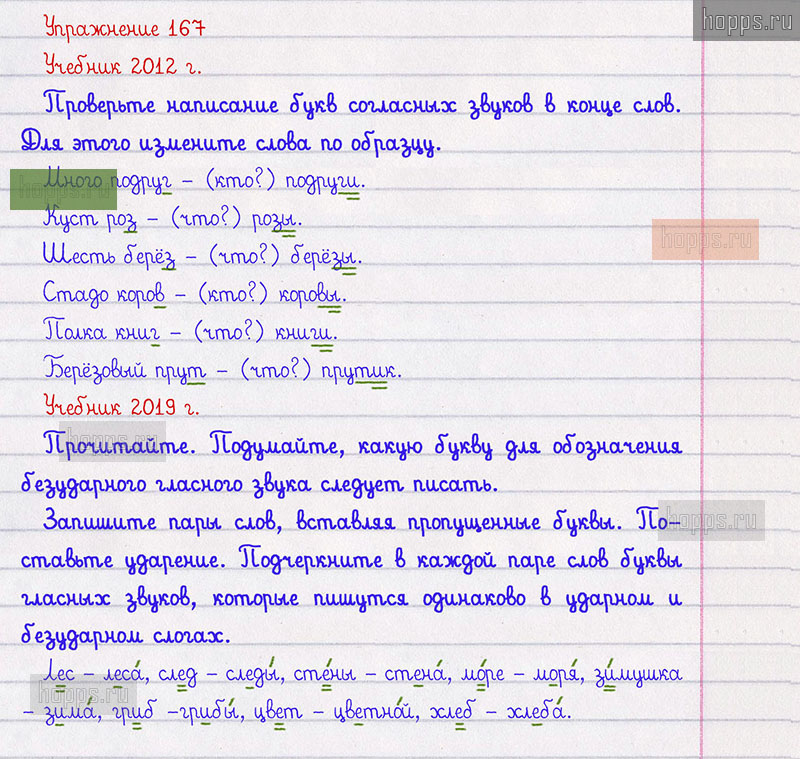 hopps.ru
Упражнение 167
Учебник 2012 г.
Проверьте написание букв согласных звуков в конце слов.
Для этого измените слова по образцу.
Много подруг – (кто?) подруги.
hopps.ru
Куст роз – (что?) розы.
hopps.ru
Шесть берёз – (что?) берёзы.
Стадо коров – (кто?) коровы.
Полка книг – (что?) книги.
Берёзовый прут – (что?) прутик.
Учебник 2019 г.
hopps.ru
Прочитайте. Подумайте, какую букву для обозначения
безударного гласного звука следует писать.
Запишите пары слов, вставляя пропущенные буквы. По-
hopps.ru
ставьте ударение. Подчеркните в каждой паре слов буквы
гласных звуков, которые пишутся одинаково в ударном и
безударном слогах.
Лес – леса́, след – следы́, сте́ны – стена́, мо́ре – моря́, зи́мушка
hopps.ru
– зима́, гриб –грибы́, цвет – цветно́й, хлеб – хлеба́.